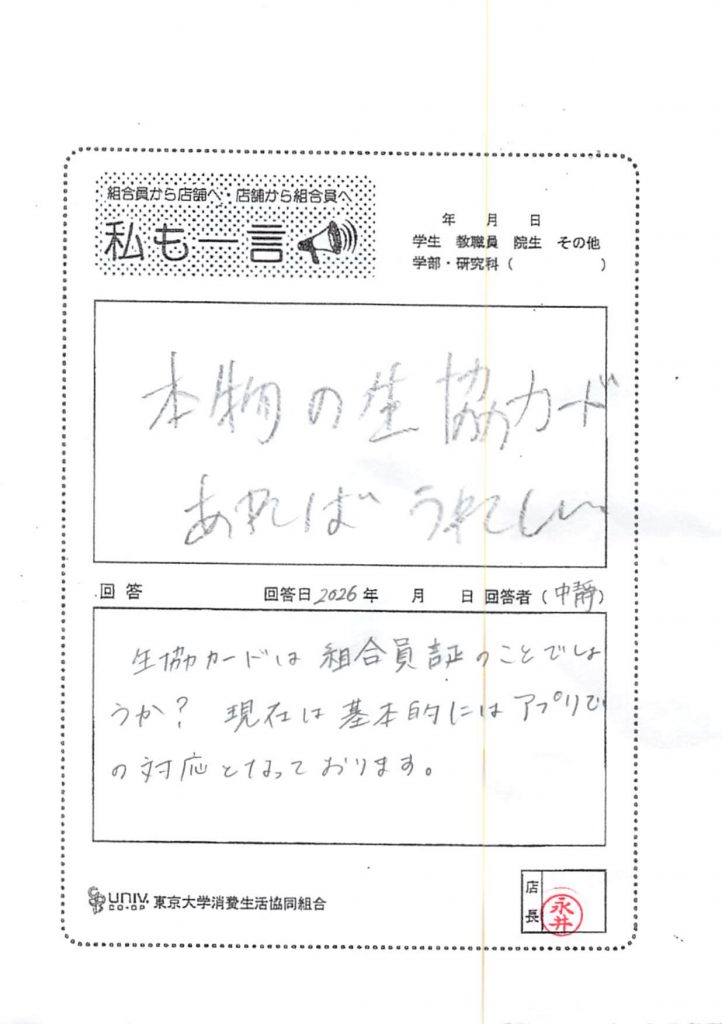 組合員から店舗へ・店舗から組合員へ
私も一言
年 月 日
学生 教職員 院生 その他
学部・研究科( )
本物の生協カード
あればうれしい
回答 回答日2026年 月 日 回答者(中静)
生協カードは組合員証のことでしょ
うか? 現在は基本的にはアプリで
の対応となっております。
UNIV.
CO-OP
東京大学消費生活協同組合
店長
永井